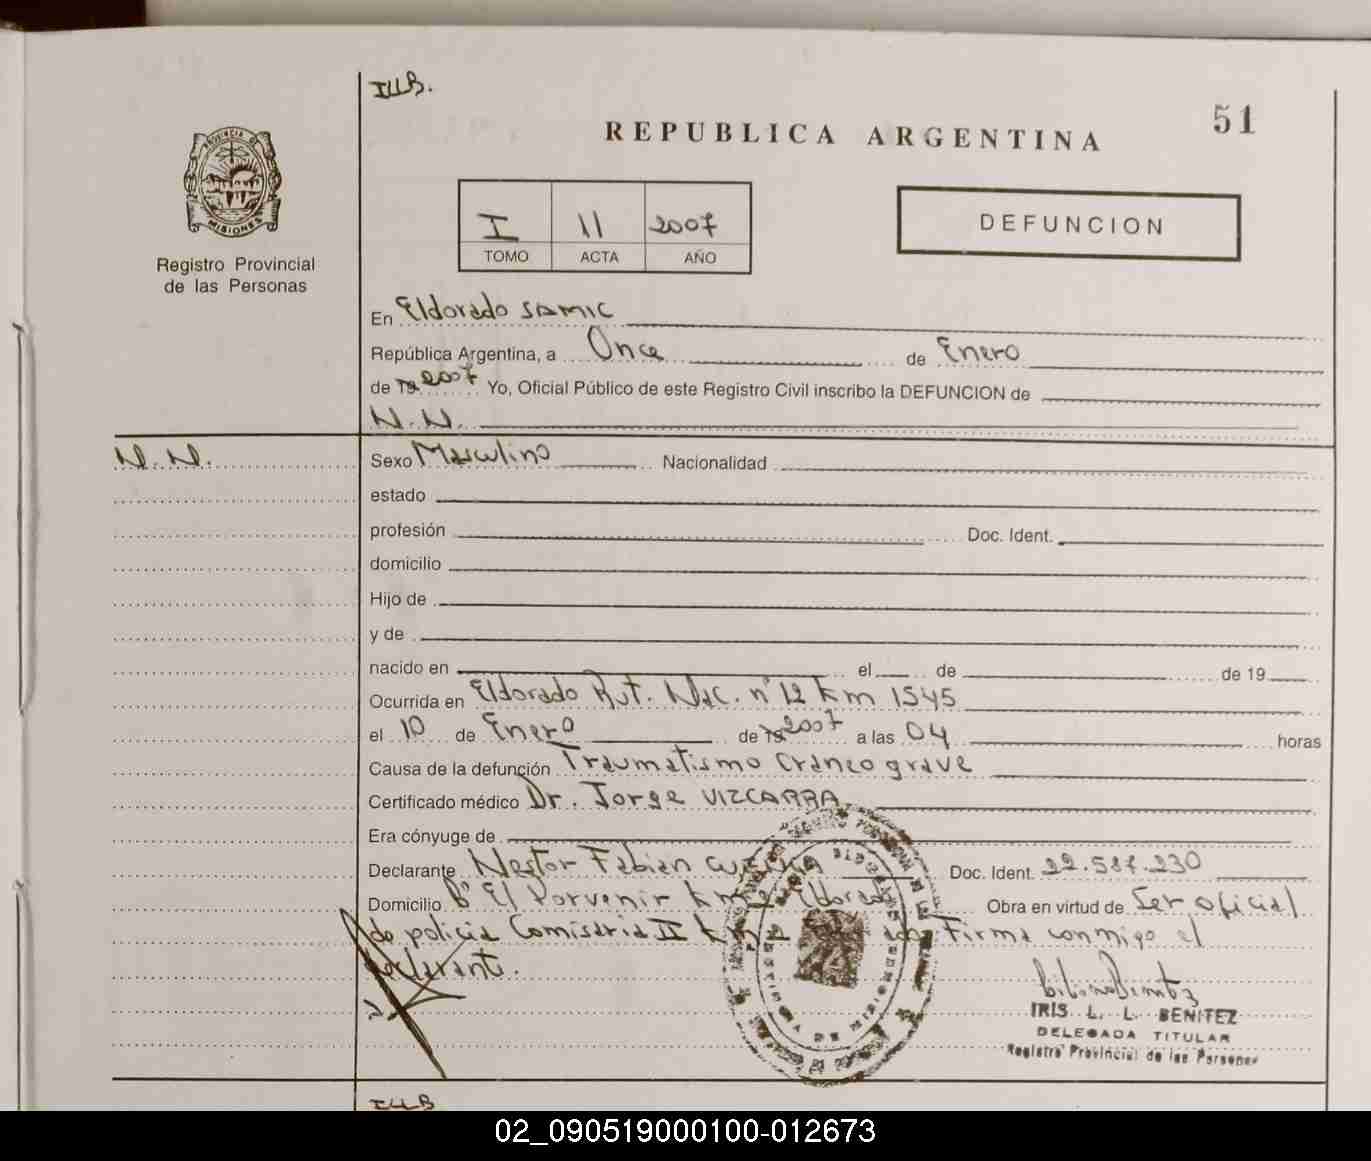 ILLB.
51
REPUBLICA ARGENTINA
PROVINCIA DE
MISIONES
Registro Provincial
de las Personas
I 11 2007
TOMO ACTA AÑO
DEFUNCION
En Eldorado SAMIC
República Argentina, a Once de Enero
de 19 2007 Yo, Oficial Público de este Registro Civil inscribo la DEFUNCION de
N.N.
N.N.
Sexo Masculino Nacionalidad
estado
profesión Doc. Ident.
domicilio
Hijo de
y de
nacido en el de de 19
Ocurrida en Eldorado Rut. Nac. nº 12 Km 1545
el 10 de Enero de 19 2007 a las 04 horas
Causa de la defunción Traumatismo craneo grave
Certificado médico Dr. Jorge VIZCARRA
Era cónyuge de
Declarante Nestor Fabian Doc. Ident. 22.587.230
Domicilio Bº El Porvenir Km Eldorado Obra en virtud de Ser oficial
de policia Comisaria II Km Firma conmigo el
declarante.
IRIS L. L. BENITEZ
DELEGADA TITULAR
Registro Provincial de las Personas
ILLB
02_090519000100-012673